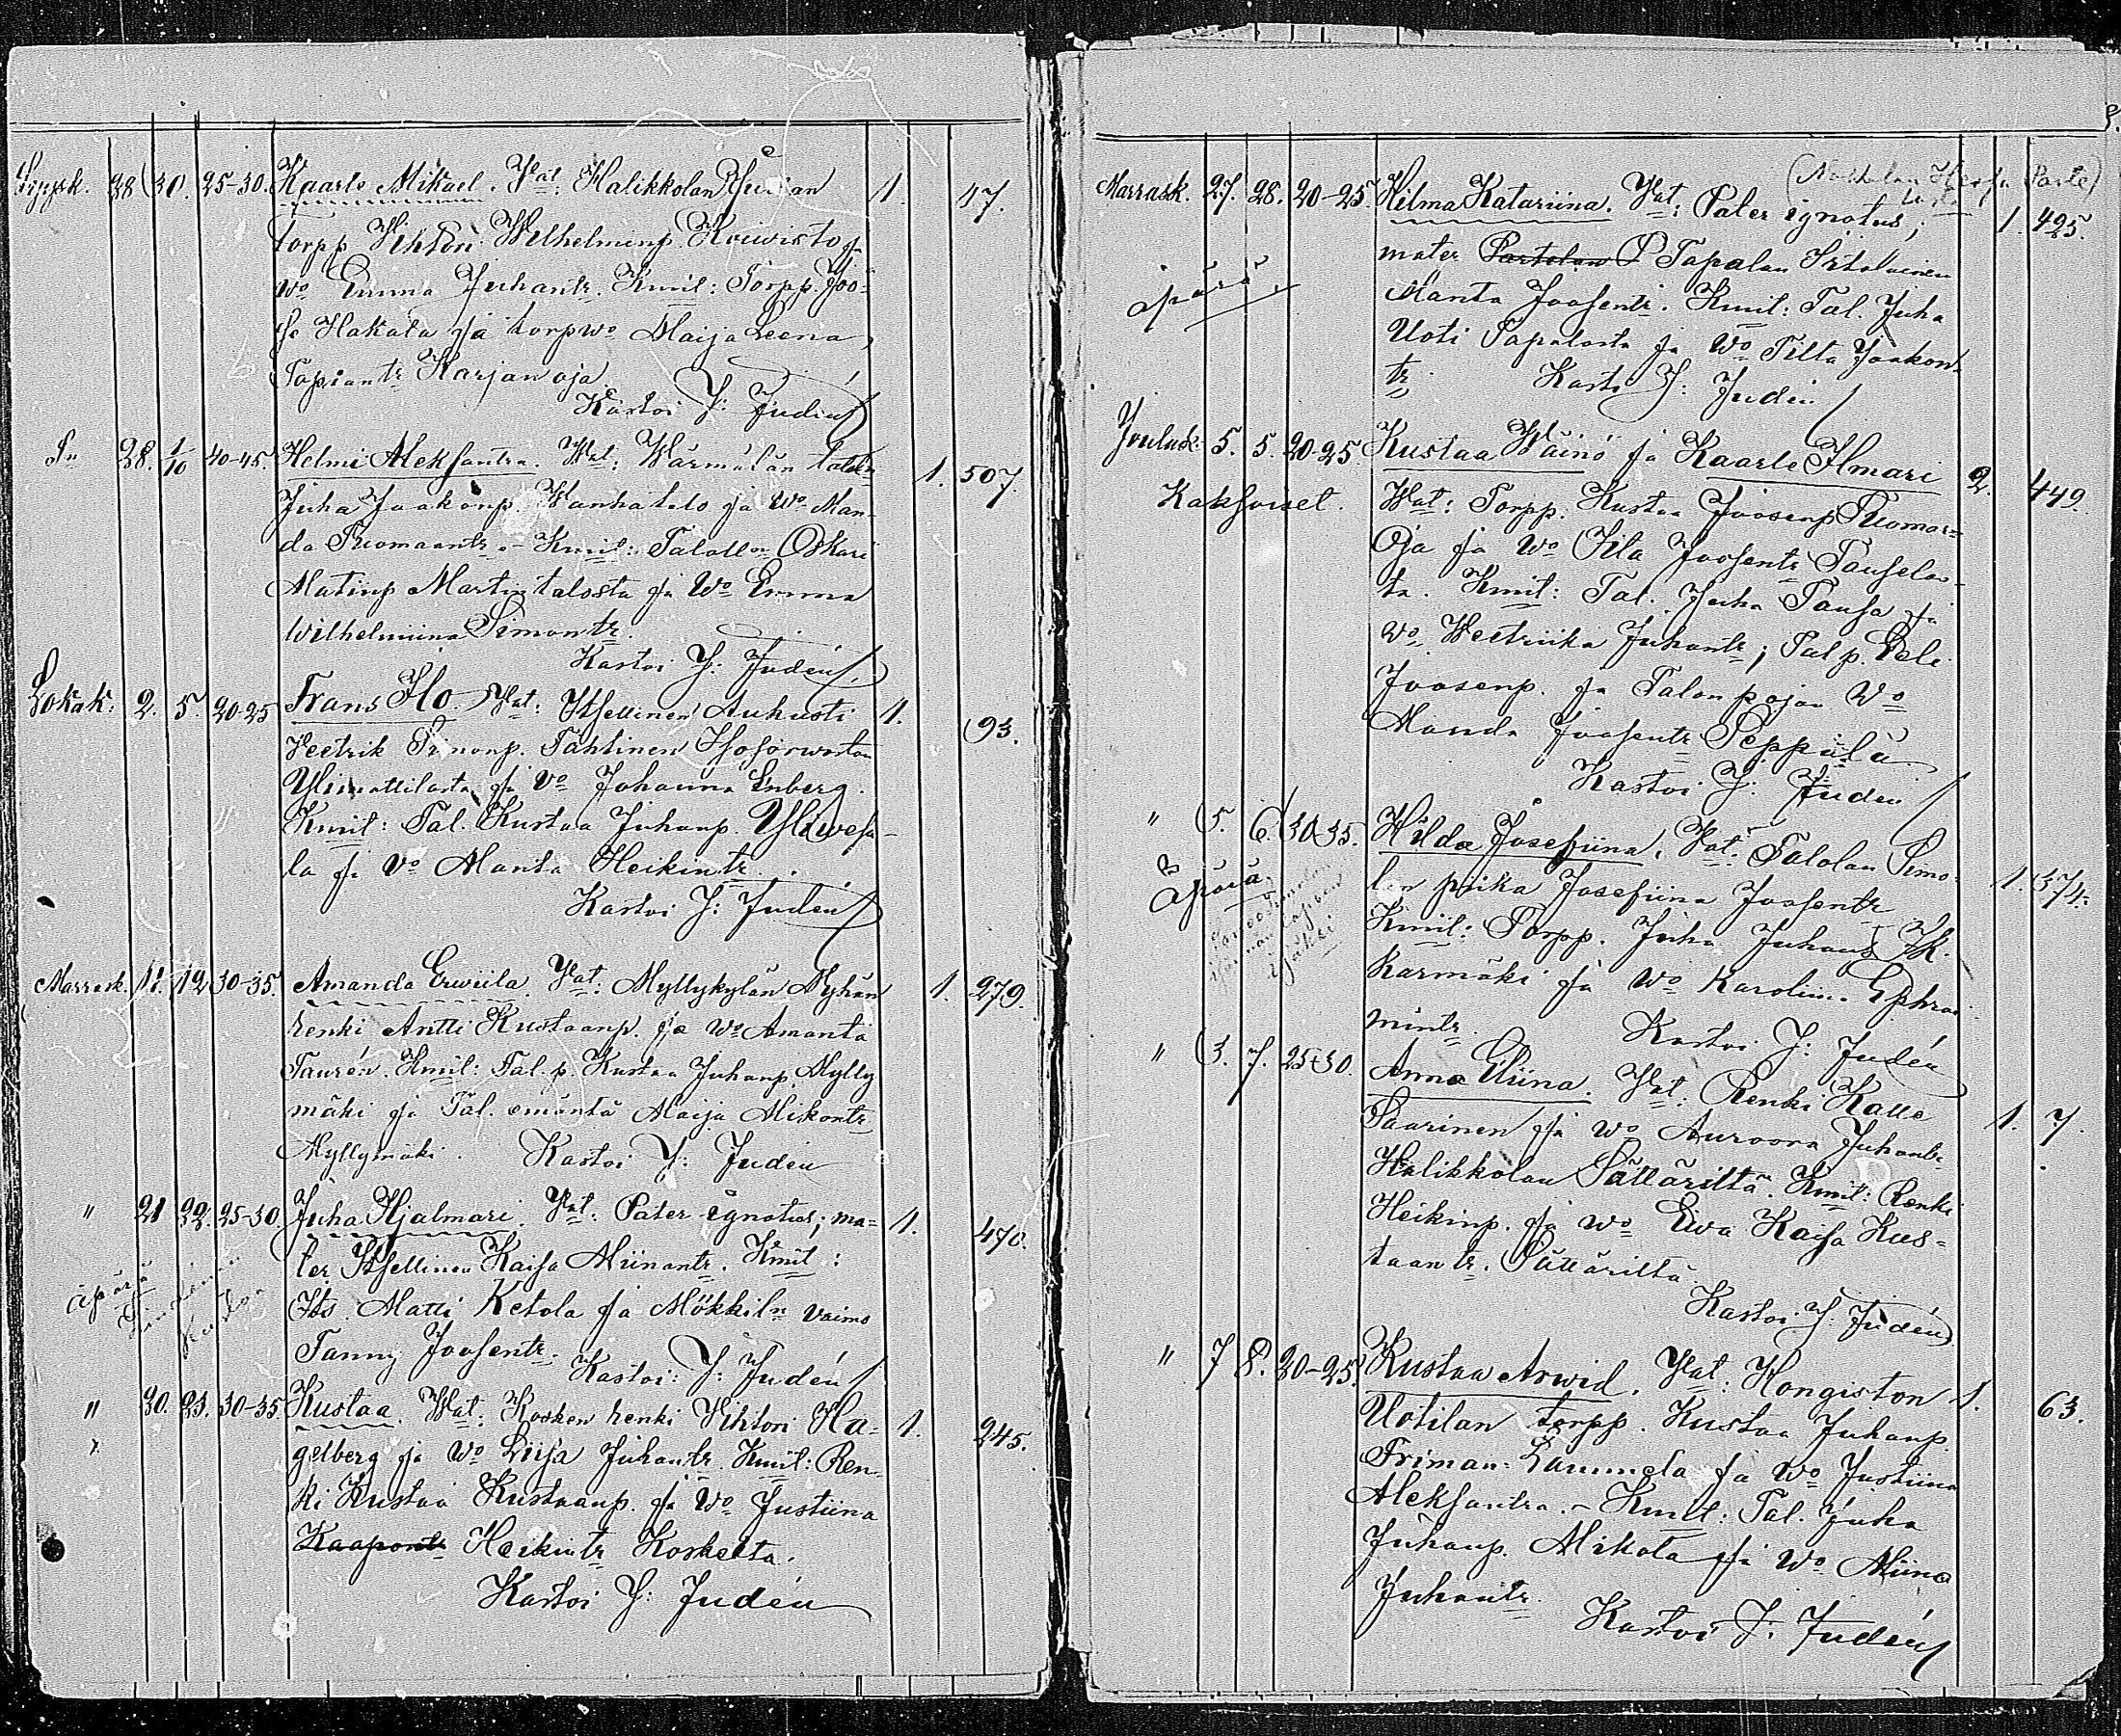 Syysk. 28 30. 25-30. Kaarlo Mikael. Wat: Halikkolan 1. 17.
torpp Wihtori Wilhelminp. Koiwisto ja
wo Emma Juhantr. Kmit: Torpp. Joo=
se Hakala ja torpwo Maija Leena
Tapiantr Harjanoja.
Kastoi J: Judén
Sn 28. 1/10 40-45. Helmi Aleksantra. Wat: Wärmälän talln 1. 507.
Juha Jaakonp. Wanhatalo ja Wo Man=
da Tuomaantr. - Kmit: Talolln Oskari
Matinp Martintalosta ja Wo Emma
Wilhelmiina Simontr.
Kastoi J: Judén
Lokak: 2. 5. 20-25 Frans Ilo. Wat: Itsellinen Aukusti 1. 93.
Feetrik Simonp. Tähtinen
Ylimattilasta ja Vo Johanna Enberg.
Kmit: Tal. Kustaa Juhanp. Yliwesa-
la ja Vo Manta Heikintr.
Kastoi J: Judén
Marrask. 11. 12 30-35. Amanda Erwiila. Wat: Myllykylän Nyhän 1. 279.
renki Antti Kustaanp. ja Wo Amanta
Taurén. Kmit: Tal. p. Kustaa Juhanp. Mylly
mäki ja Tal. emäntä Maija Mikontr
Myllymäki. Kastoi J: Judén
" 21 22. 25-30. Juha Hjalmari. Wat: Pater ignotus; ma= 1. 470.
ter Itsellinen Kaisa Miinantr. Kmit:
äpärä Its. Matti Ketola ja Mökkiln vaimo
Fanny Joosentr. Kastoi: J: Judén
" 20. 23. 30-35. Kustaa. Wat: Kosken renki Vihtori Ha= 1. 245.
gelberg ja Wo Liisa Juhantr. Kmit: Ren=
ki Kustaa Kustaanp. ja Wo Justiina
Kaapontr Heikintr Koskelta.
Kastoi J: Judén
Marrask. 27. 28. 20-25. Hilma Katariina. Wat: Pater ignotus; 1. 425.
mater Tapalan
äpärä. Manta Joosentr. Kmit: Tal. Juha
Uoti Tapalasta ja Wo Tilta Jaakon=
tr. Kasti J: Judén
Jouluk. 5. 5. 20-25. Kustaa Wäinö ja Kaarlo Ilmari 2. 449.
Kaksoiset. Wat: Torpp. Kustaa Joosenp Tuomar=
oja ja Wo Iita Joosentr Pauselas-
ta. Kmit: Tal. Juha Pausa ja
Wo Weetriika Juhantr; Talp. Eeli
Joosenp. ja Talonpojan Wo
Manda Joosentr Seppälä.
Kastoi J: Judén
" 5. 6. 30-35. Hilda Josefiina. Wat: Talolan Simo- 1. 374.
äpärä. lan piika Josefiina Joosentr
Kmit: Torpp. Juha Juhanp
Karmäki ja Wo Karoliin. Ephra
mintr. Kastoi J: Judén
" 3. 7. 25-30. Anna Eliina. Wat: Renki Kalle 1. 7.
Saarinen ja Wo Auroora Juhantr
Halikkolan Sättäriltä. Kmit: Renki
Heikinp. ja Wo Eiva Kaisa Kus=
taantr. Sättäriltä
Kastoi J: Judén
" 7 8. 20-25. Kustaa Arwid. Wat: Hongiston 1. 63.
Uotilan torpp. Kustaa Juhanp.
Friman-Lammela ja Wo Justiina
Aleksantra. - Kmit: Tal. Juha
Juhanp. Mikola ja Wo Miina
Juhantr.
Kastoi J: Judén